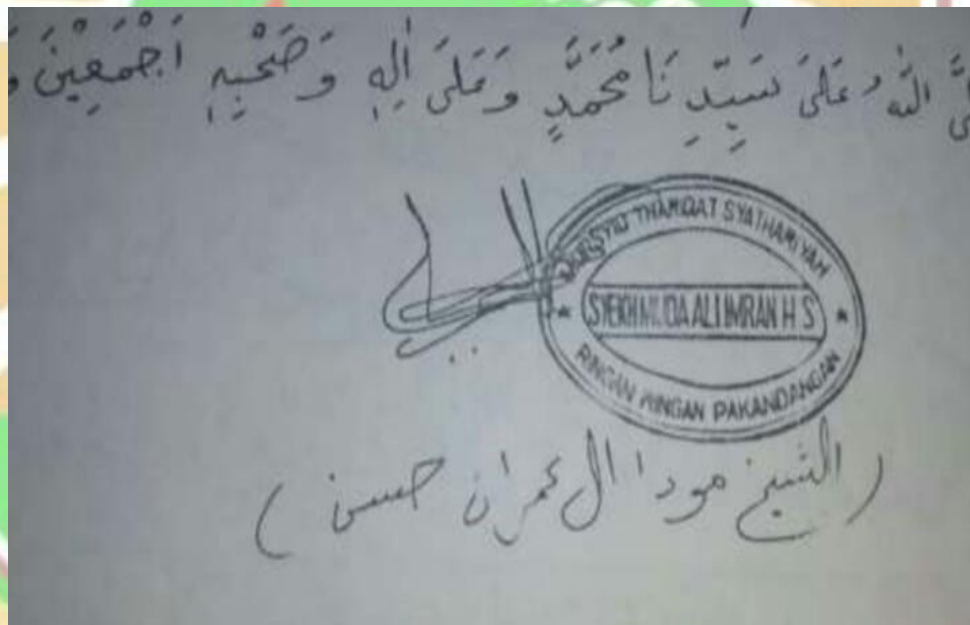 الله عَلَى سَيِّدِنَا مُحَمَّدٍ وَعَلَى اٰلِهِ وَصَحْبِهِ اَجْمَعِيْنَ
MURSYID THARIQAT SYATHARIYAH
* SYEKH MUDA ALI IMRAN H S *
RINGAN RINGAN PAKANDANGAN
(الشيخ مودا ال عمران حسن)